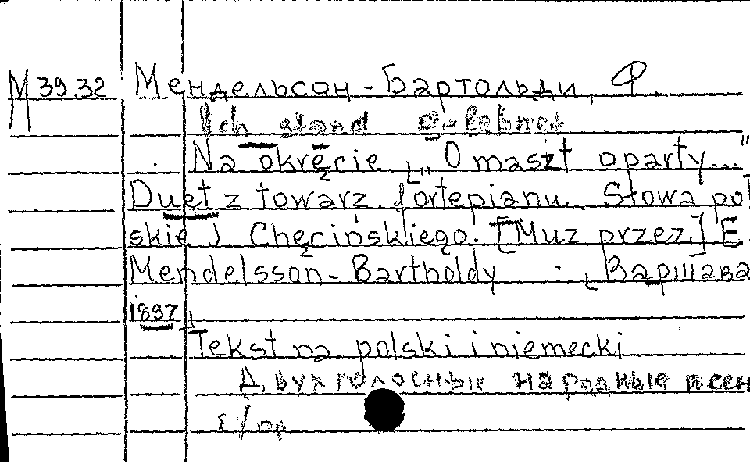 М 3932 Мендельсон-Бартольди, Ф.
Ich stand gelehnet
Na okręcie [„O maszt oparty..."
Duet z towarz. fortepianu. Słowa pol
skie J. Chęcińskiego. [Muz przez] F.
Mendelsson-Bartholdy - [Варшава
1897]
Tekst na polski i niemecki
Двухголосные народные песен